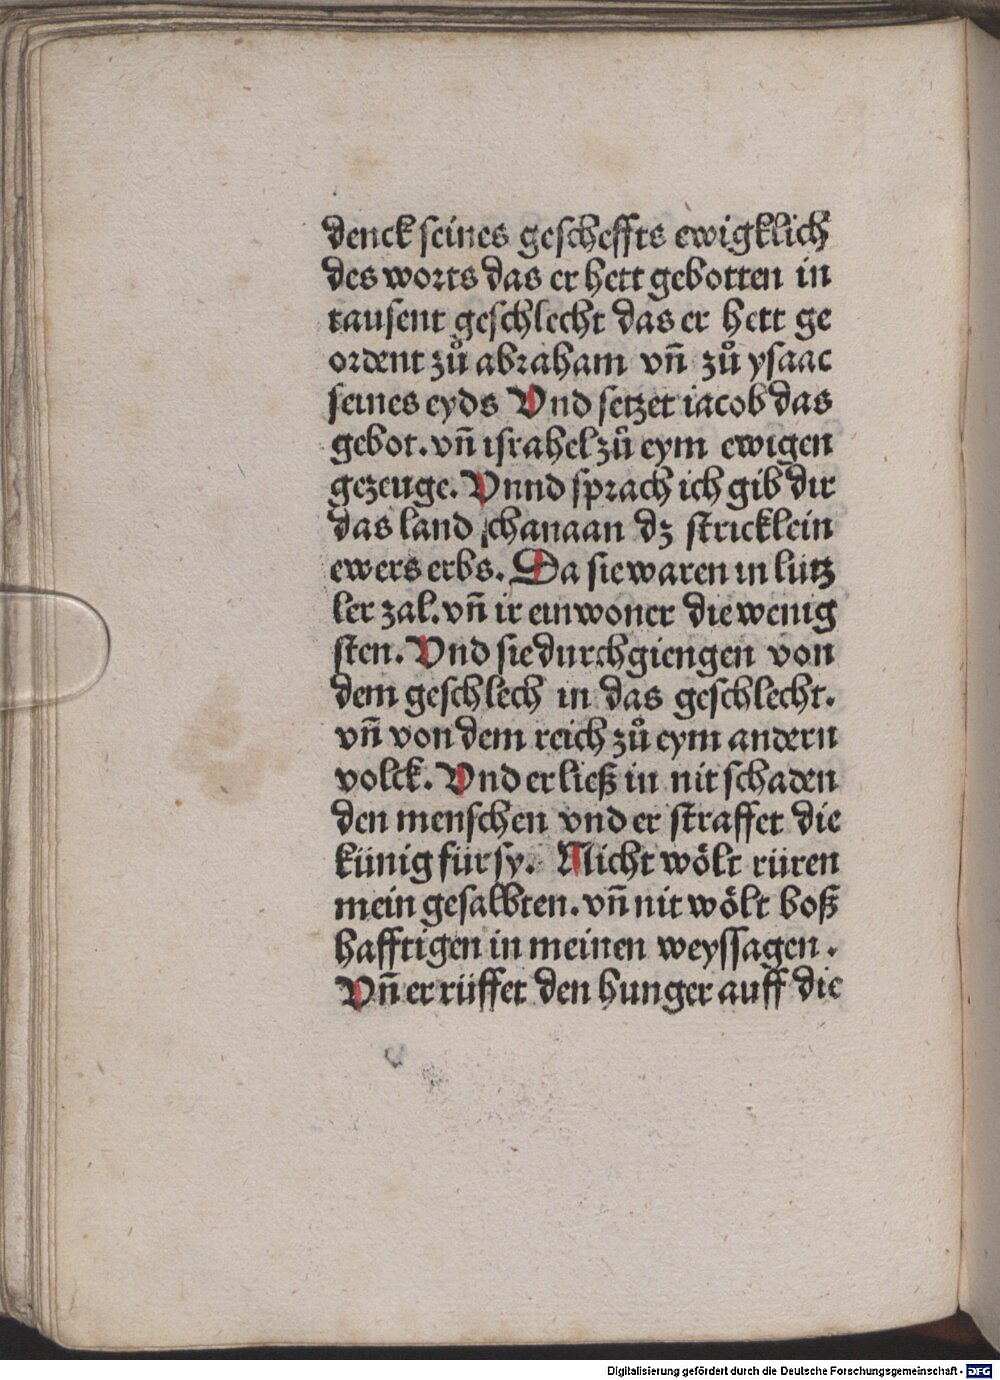 denck seines gescheffts ewigklich
des worts das er hett gebotten in
tausent geschlecht das er hett ge
ordent zů abraham vñ zů ysaac
seines eyds Vnd setzet iacob das
gebot. vñ israhel zů eym ewigen
gezeuge. Vnnd sprach ich gib dir
das land chanaan dz stricklein
ewers erbs. Da sie waren in lütz
ler zal. vñ ir einwoner die wenig
sten. Vnd sie durchgiengen von
dem geschlech in das geschlecht.
vñ von dem reich zů eym andern
volck. Vnd er ließ in nit schaden
den menschen vnd er straffet die
künig für sy. Nicht wölt rüren
mein gesalbten. vñ nit wölt boß
hafftigen in meinen weyssagen.
Vñ er rüffet den hunger auff die
Digitalisierung gefördert durch die Deutsche Forschungsgemeinschaft - DFG